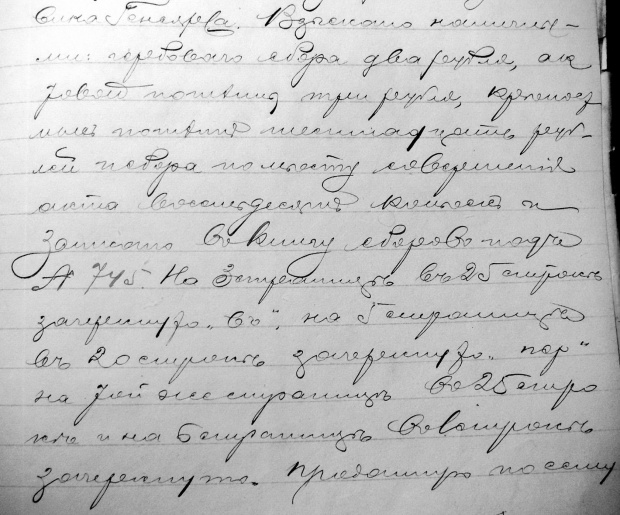 сина Гензлрева. Взыскано наличны-
ми: гербоваго сбора два рубля, ак
товой пошлины три рубля, крепост
ныхъ пошлинъ шестнадцать руб-
лей и сбора по месту совершенія
акта восемьдесятъ копеекъ и
записано въ книгу сборовъ подъ
№ 745. На 3 страницѣ въ 25 строкѣ
зачеркнуто „въ“, на 5 страницѣ
въ 20 строкѣ зачеркнуто „пер“
на той же странице въ 25 стро
кѣ и на 6 страницѣ въ строкѣ
зачеркнуто. по сему